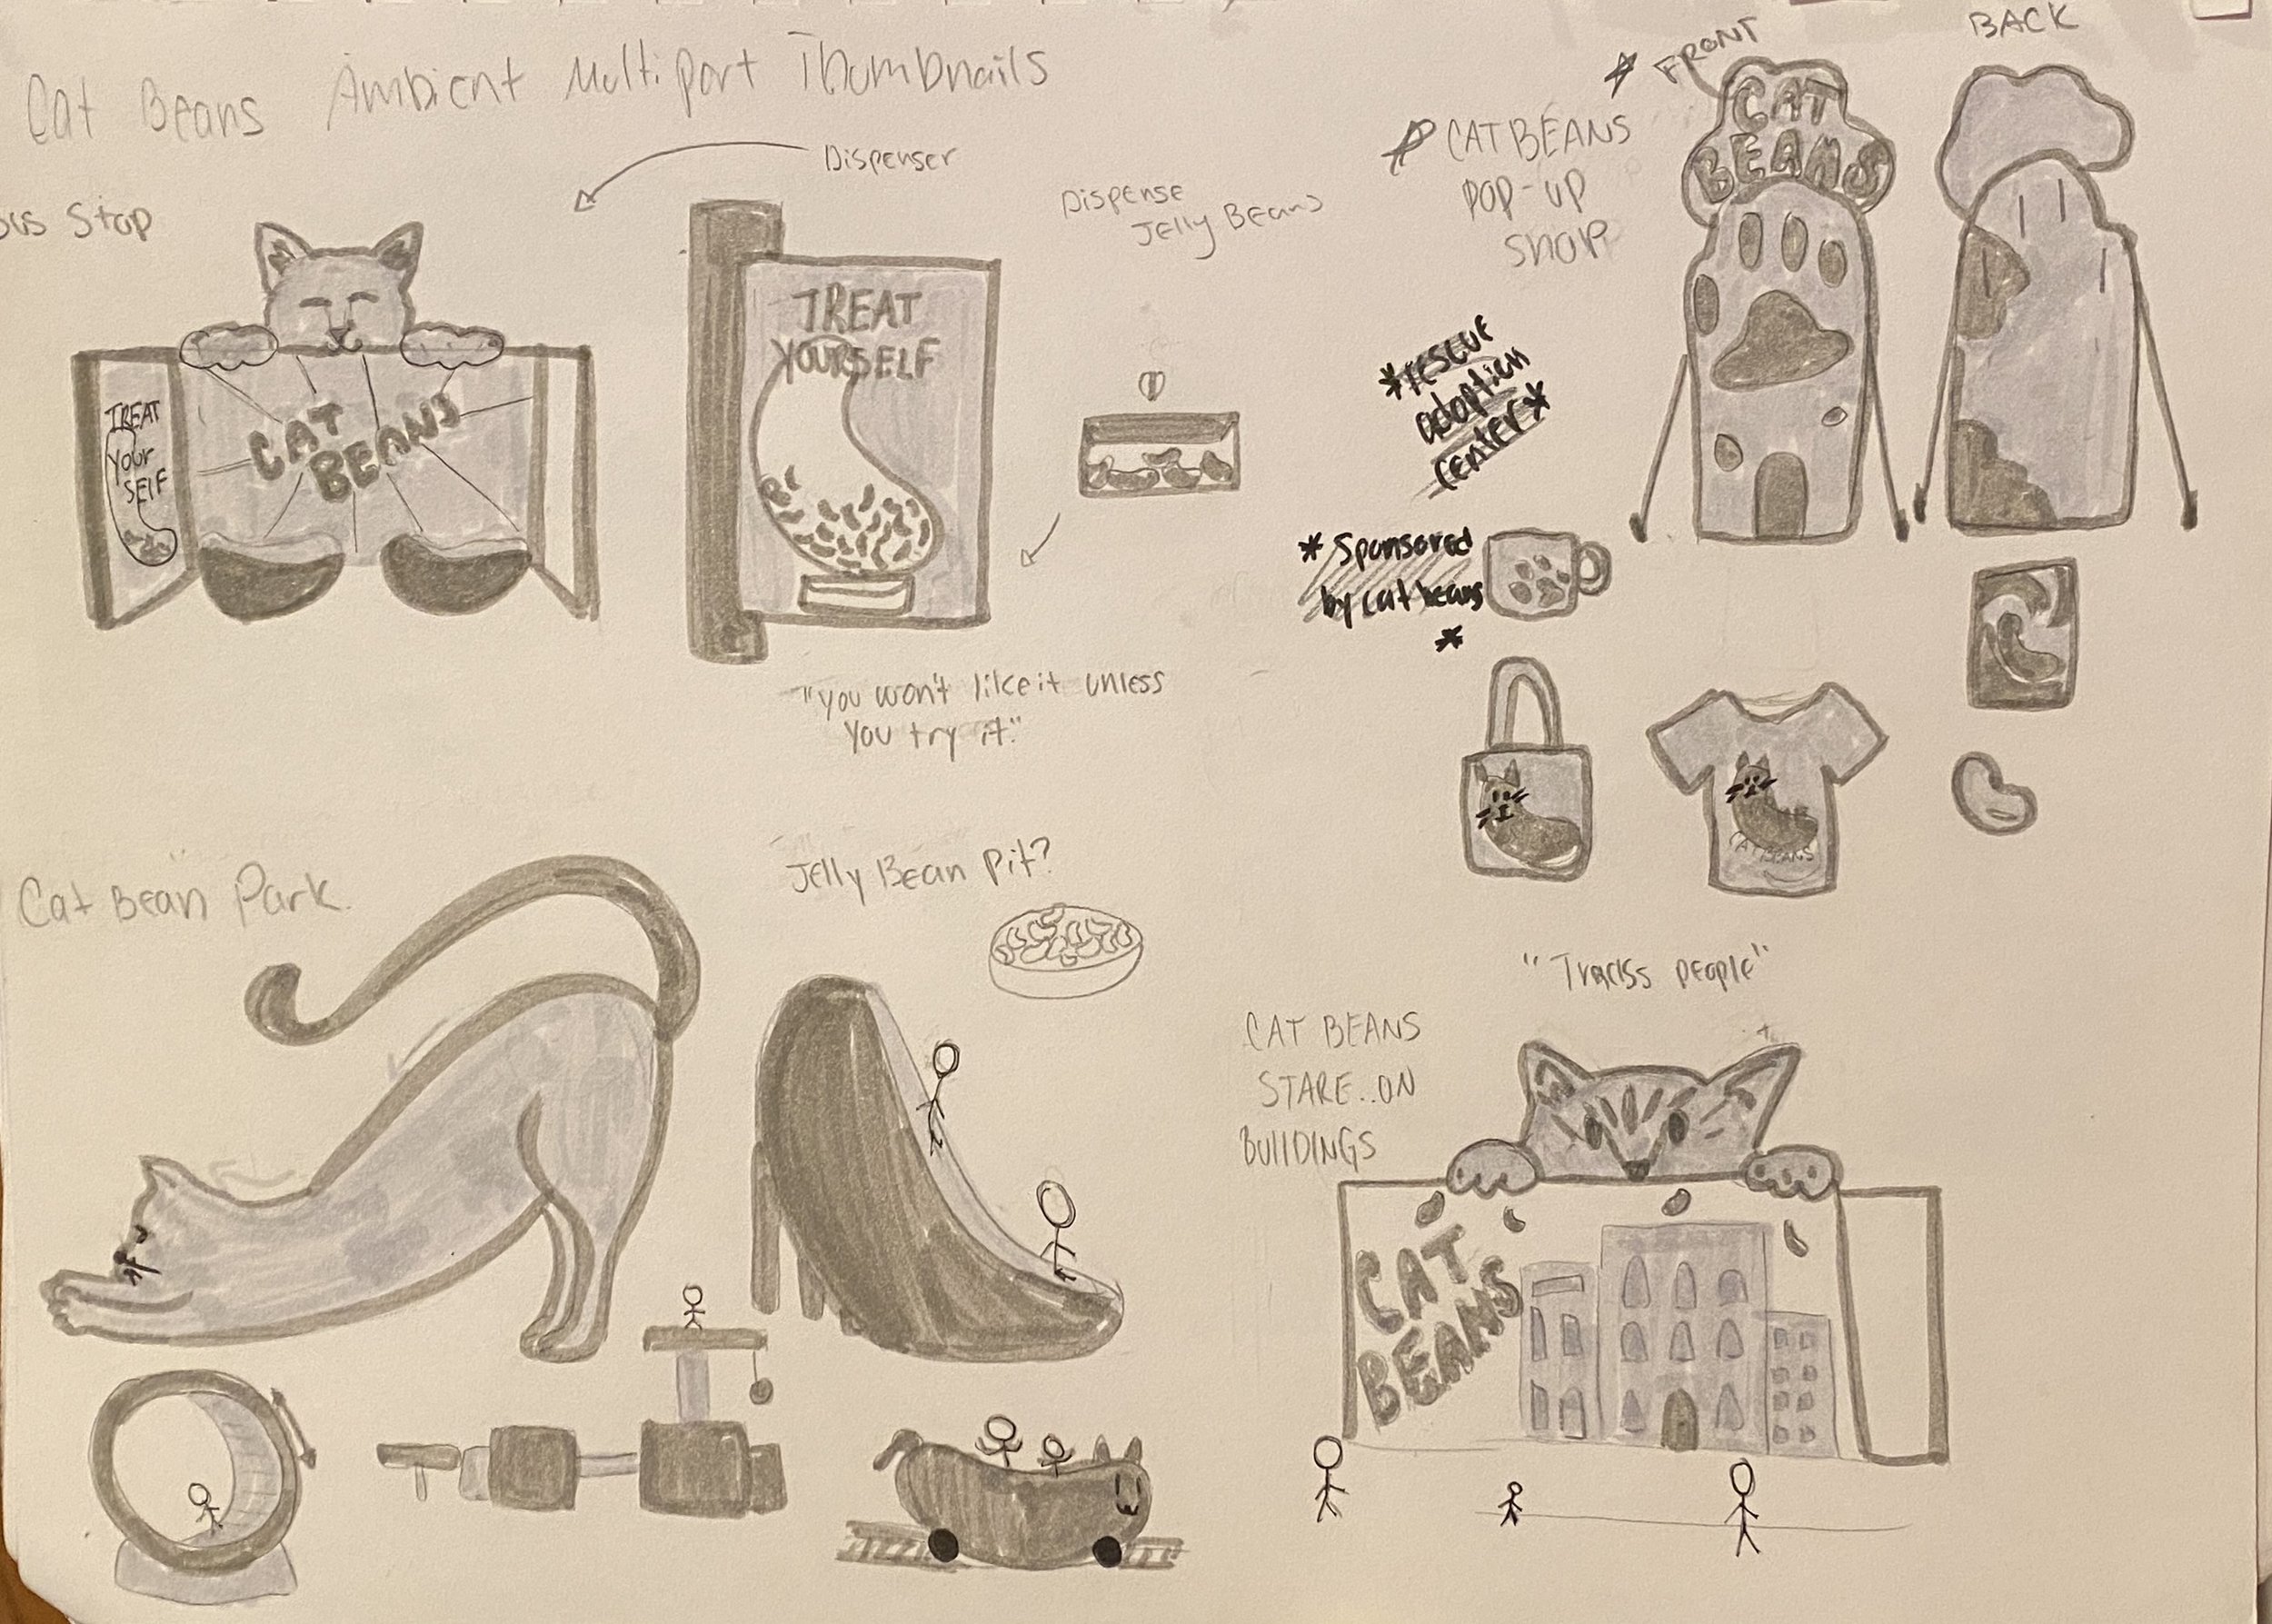 Cat Beans Ambient Multipart Thumbnails
Bus Stop
TREAT
Your
SELF
CAT
BEANS
Dispenser
TREAT
YOURSELF
Dispense
Jelly Beans
"you won't like it unless
you try it."
FRONT
BACK
CAT
BEANS
CAT BEANS
POP-UP
SHOP
*rescue
adoption
center*
* Sponsored
by cat beans
*
CAT BEANS
Cat "Bean" Park.
Jelly Bean Pit?
CAT BEANS
STARE..ON
BUILDINGS
people"
CAT
BEANS